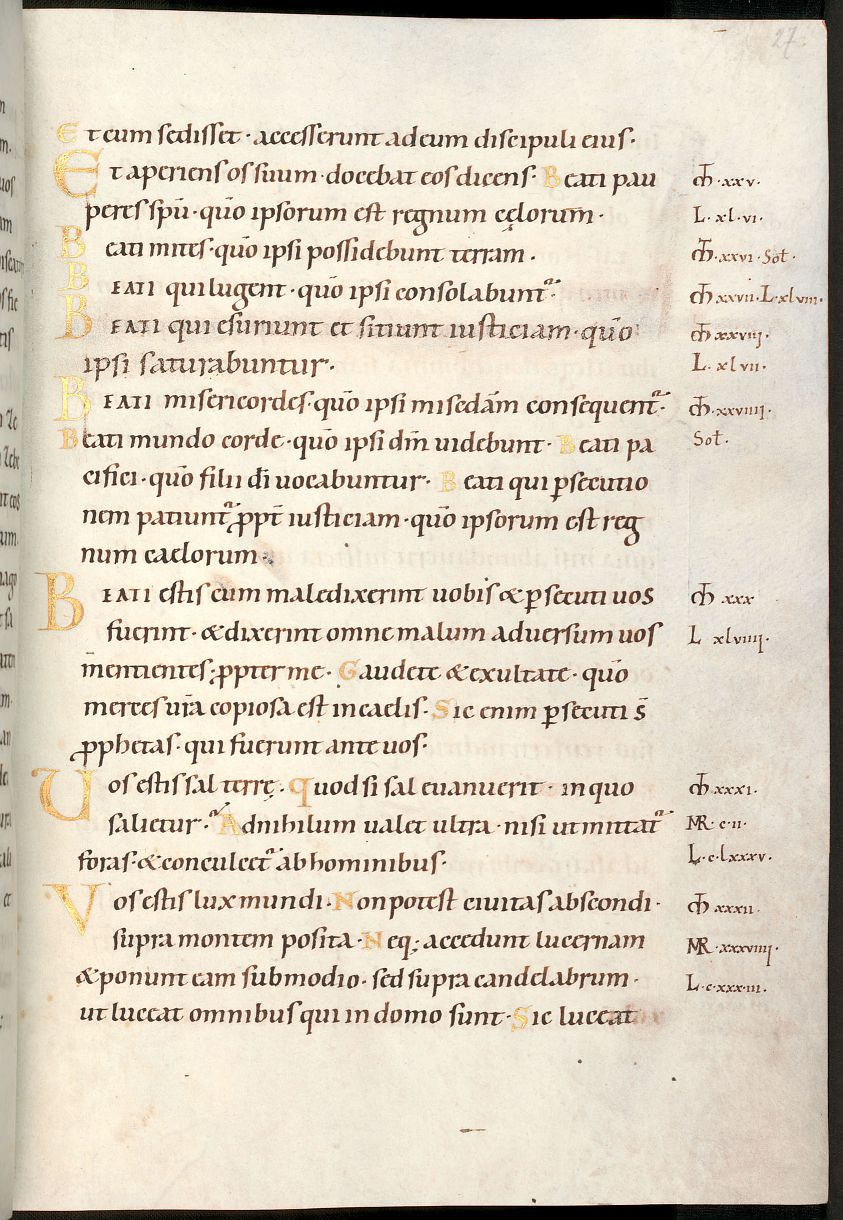 27
Et cum sedisset · accesserunt ad eum discipuli eius ·
Et aperiens os suum · docebat eos dicens · Beati pau
peres spū · quo̅ ipsorum est regnum cęlorum ·
Beati mites · quo̅ ipsi possidebunt terram ·
BEATI qui lugent · quo̅ ipsi consolabunt᷑ ·
BEATI qui esuriunt et sitiunt iusticiam · quo̅
ipsi saturabuntur ·
BEATI misericordes · quo̅ ipsi misedām consequent᷑ ·
Beati mundo corde · quo̅ ipsi dm̅ uidebunt · Beati pa
cifici · quo̅ filii dī uocabuntur · Beati qui ꝑsecutio
nem patiunt᷑ ꝓpt̅ iusticiam · quo̅ ipsorum est reg
num caelorum ·
BEATI estis cum maledixerint uobis & ꝑsecuti uos
fuerint · & dixerint omne malum aduersum uos
mentientes ; ꝓpter me · Gaudete & exultate · quo̅
merces ur̅a copiosa est in caelis · Sic enim ꝑsecuti s̅
ꝓphetas · qui fuerunt ante uos ·
Uos estis sal terrę · Quod si sal euanuerit · in quo
salietur · Ad nihilum ualet ultra · nisi ut mittat᷑
foras · & conculcet᷑ ab hominibus ·
Vos estis lux mundi · Non potest ciuitas abscondi ·
supra montem posita · Neq; accedunt lucernam
& ponunt eam sub modio · sed supra candelabrum ·
ut luceat omnibus qui in domo sunt · Sic luceat
M̅ · xxv ·
L · xl · vi ·
M̅ · xxvi · Sol̅ ·
M̅ xxvii · L · xlviii ·
M̅ xxviii ·
L · xlvii ·
M̅ · xxviiii ·
Sol̅ ·
M̅ xxx
L xlviiii ·
M̅ xxxi ·
MR · c · ii ·
L · c · lxxxv ·
M̅ xxxii ·
MR · xxxviiii ·
L · c · xxx · iii ·